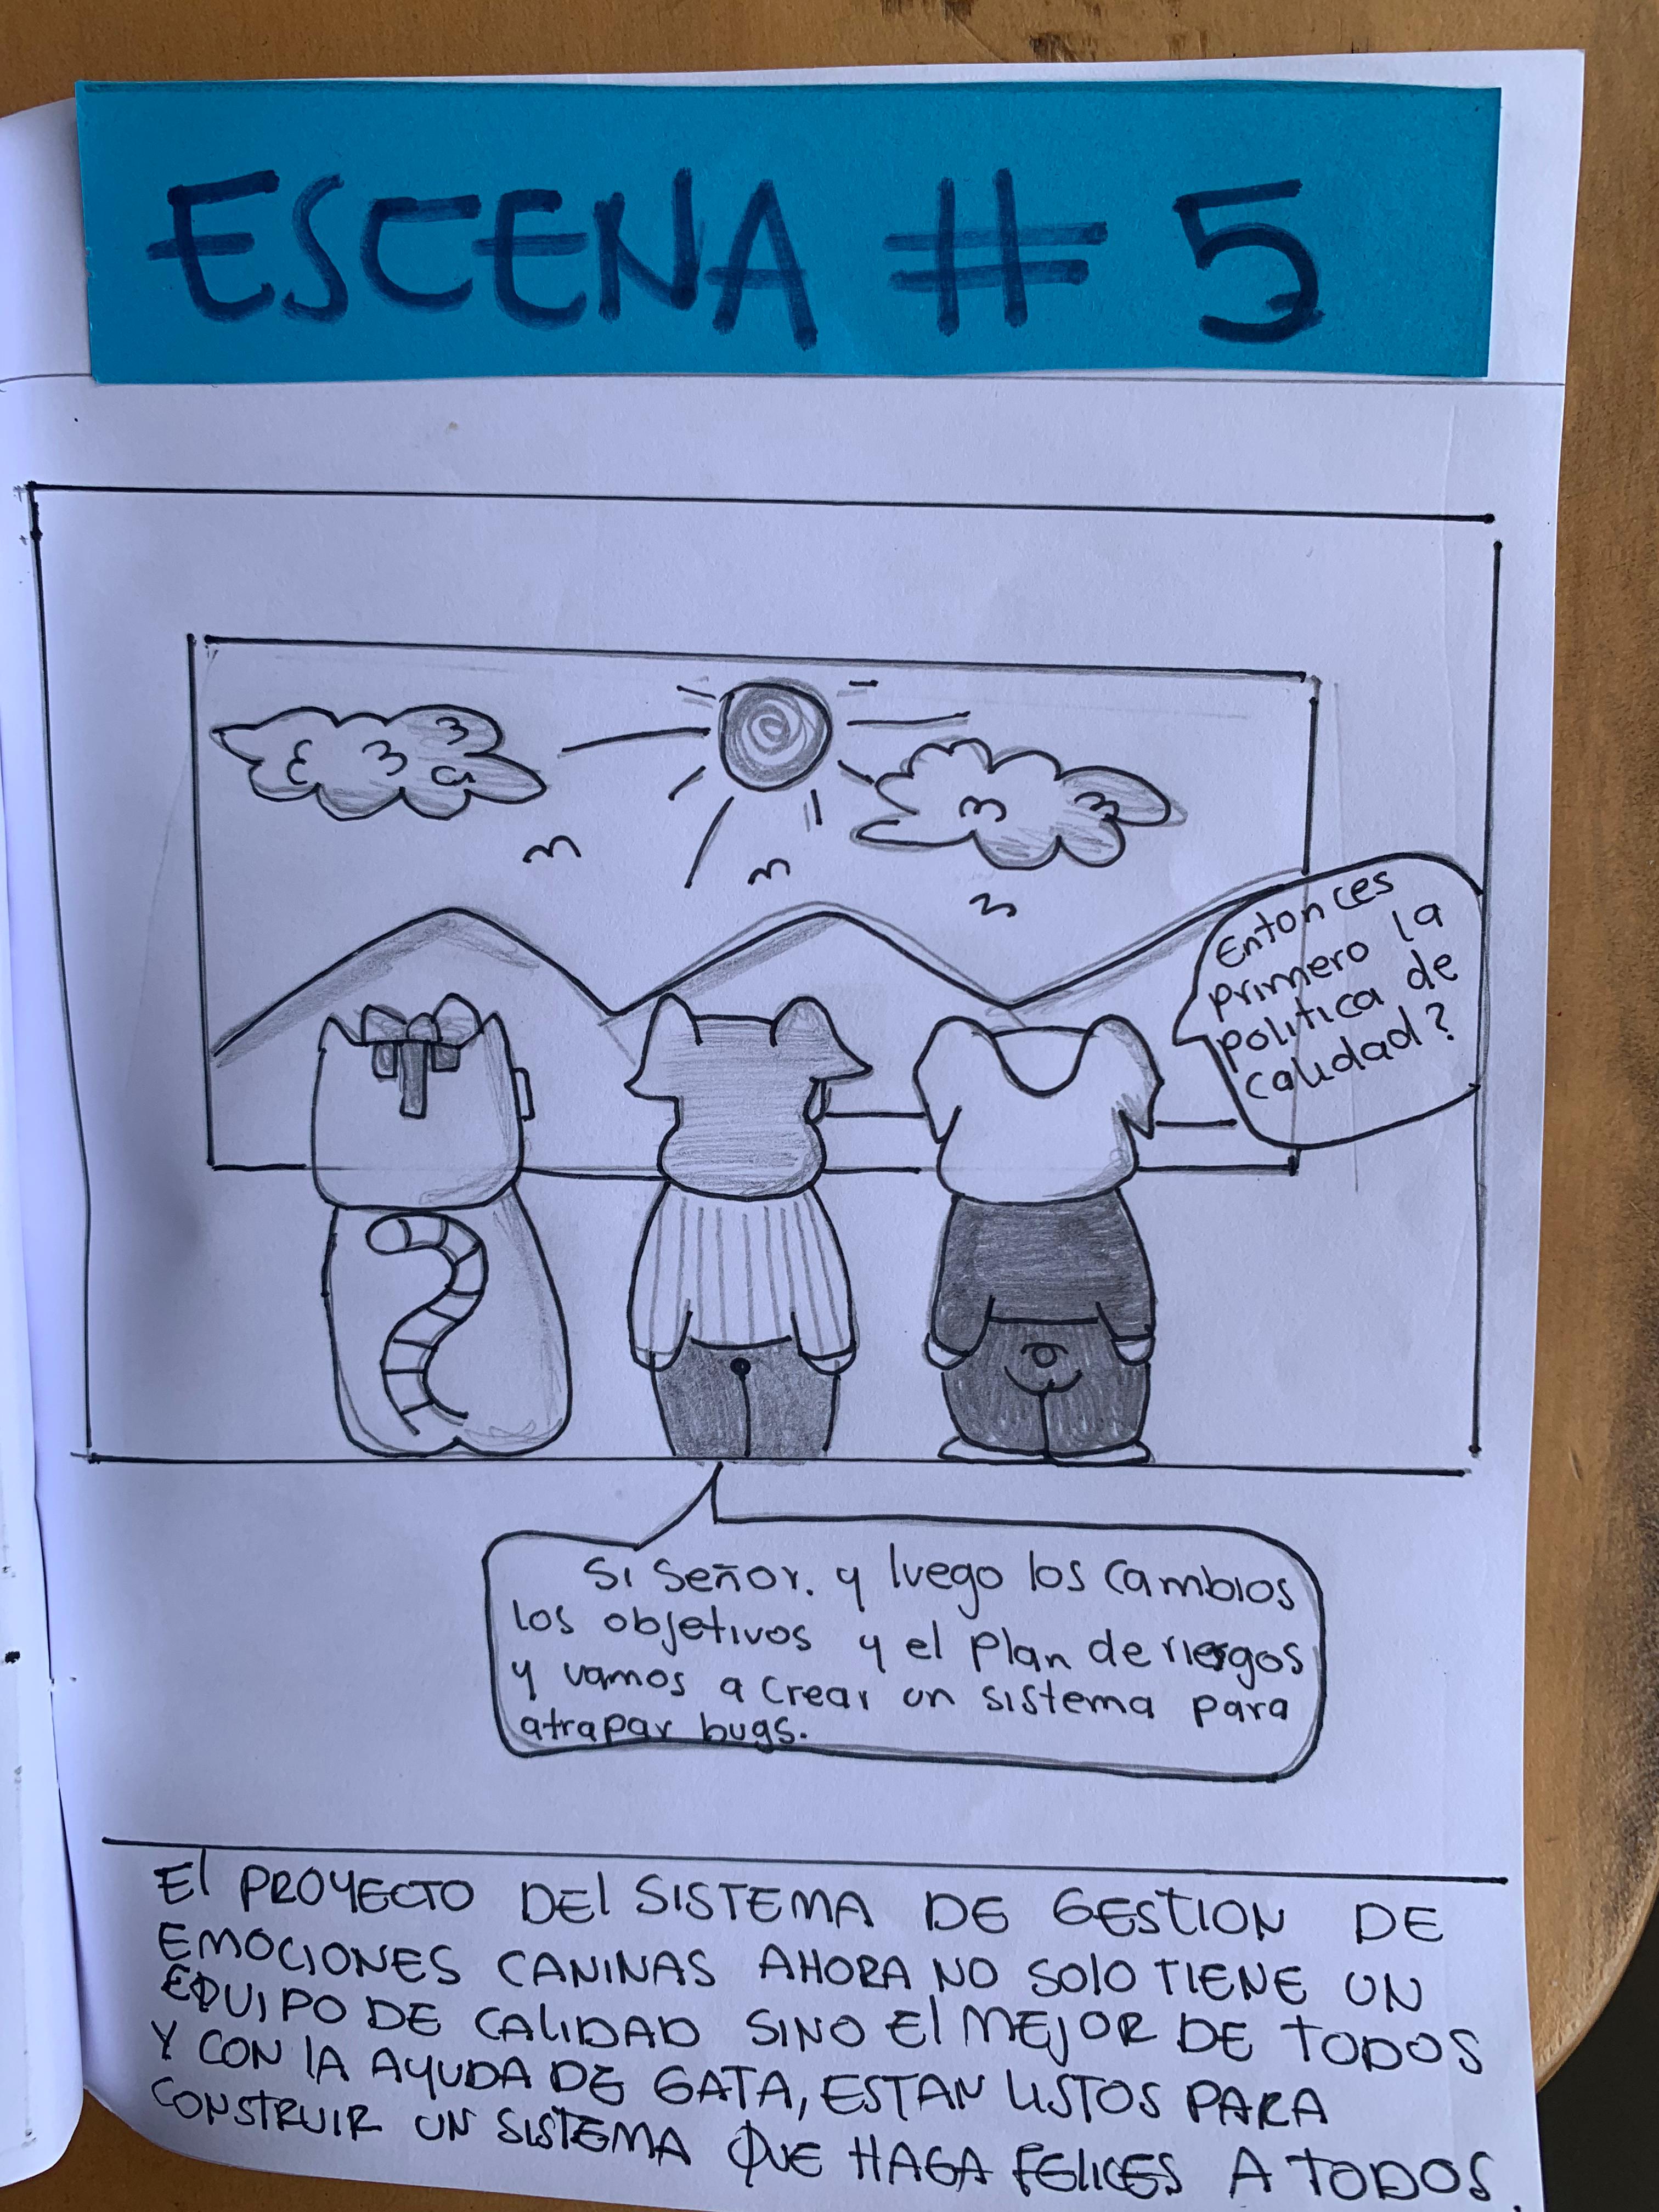 ESCENA # 5
Entonces
primero la
politica de
calidad?
Si Señor. y luego los cambios
los objetivos y el plan de riesgos
y vamos a crear un sistema para
atrapar bugs.
El PROYECTO DEl SISTEMA DE GESTION DE
EMOCIONES CANINAS AHORA NO SOlO TIENE UN
EQUIPO DE CALIDAD SINO El MEJOR DE TODOS
Y CON lA AYUDA DE GATA, ESTAN LISTOS PARA
CONSTRUIR UN SISTEMA QUE HAGA FELICES A TODOS.